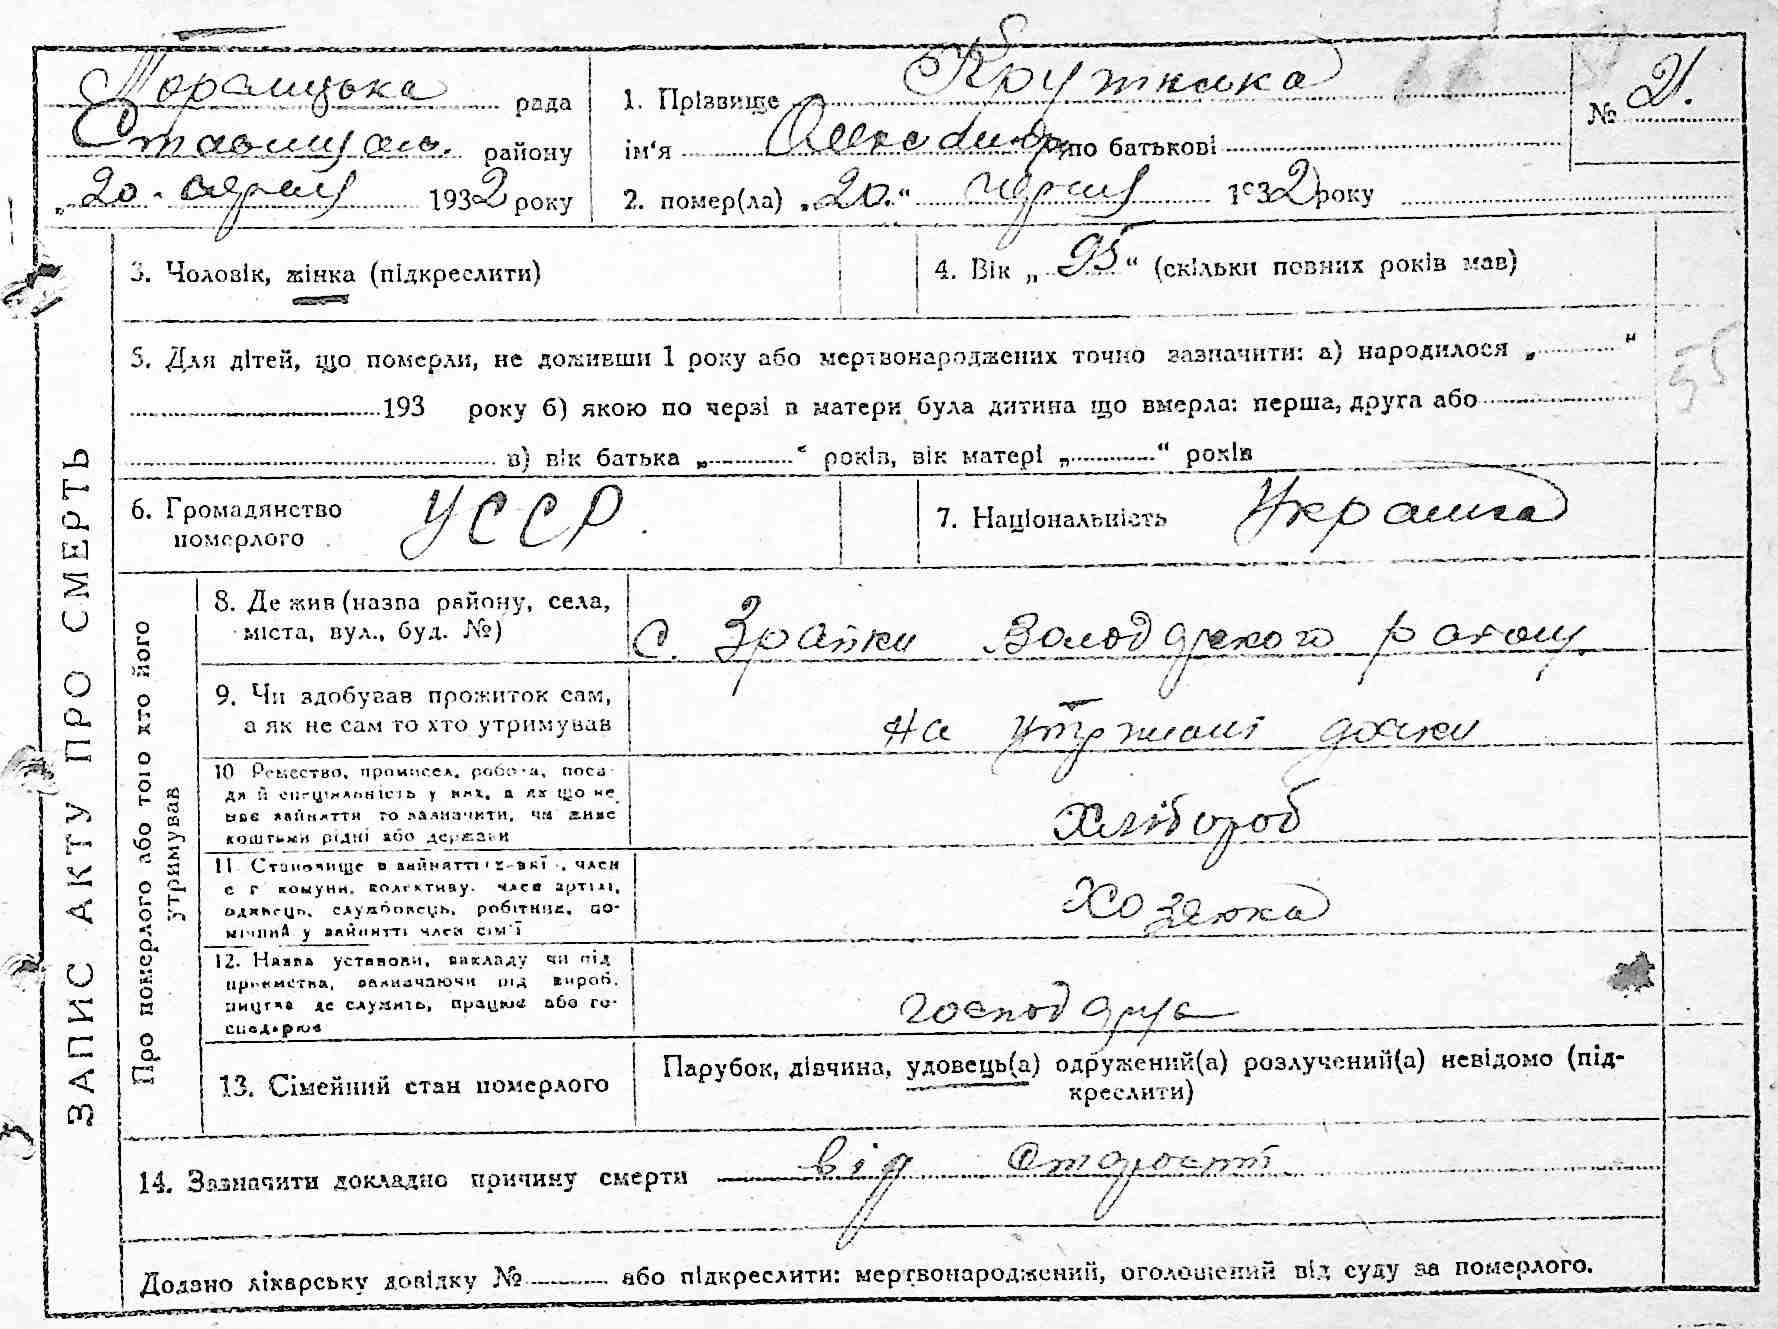 рада
Ставищан. району
„20. червня 1932 року
1. Прізвище
ім‘я Олександра по батькові
2. помер(ла) „20.“ червня 1932 року
№ 21.
ЗАПИС АКТУ ПРО СМЕРТЬ
3. Чоловік, жінка (підкреслити)
4. Вік „95“ (скільки повних років мав)
5. Для дітей, що померли, не доживши 1 року або мертвонароджених точно зазначити: а) народилося „ “
193 року б) якою по черзі в матери була дитина що вмерла: перша, друга або
в) вік батька „ “ років, вік матері „ “ років
55
6. Громадянство
померлого
УССР.
7. Національність
Про померлого або того хто його
утримував
8. Де жив (назва району, села,
міста, вул., буд. №)
с. Зрайки Володарского району.
9. Чи здобував прожиток сам,
а як не сам то хто утримував
на утрмані дочки
10 Ремество, промисел, робота, поса-
да й спеціяльність у них, а як що не
має зайняття то зазначити, чи живе
коштами рідні або держави
хлібороб
11 Становище в зайнятті член
с г комуни, колективу, член артілі,
одинець, службовець, робітник, по-
мічний у зайнятті член сім'ї
Хозяюка
12. Назва установи, закладу чи під
приємства, зазначаючи рід вироб.
ництва де служить, працює або го-
сподарює
13. Сімейний стан померлого
Парубок, дівчина, удовець(а) одружений(а) розлучений(а) невідомо (під-
креслити)
14. Зазначити докладно причину смерти від старости.
Додано лікарську довідку № або підкреслити: мертвонароджений, оголошений від суду за померлого.